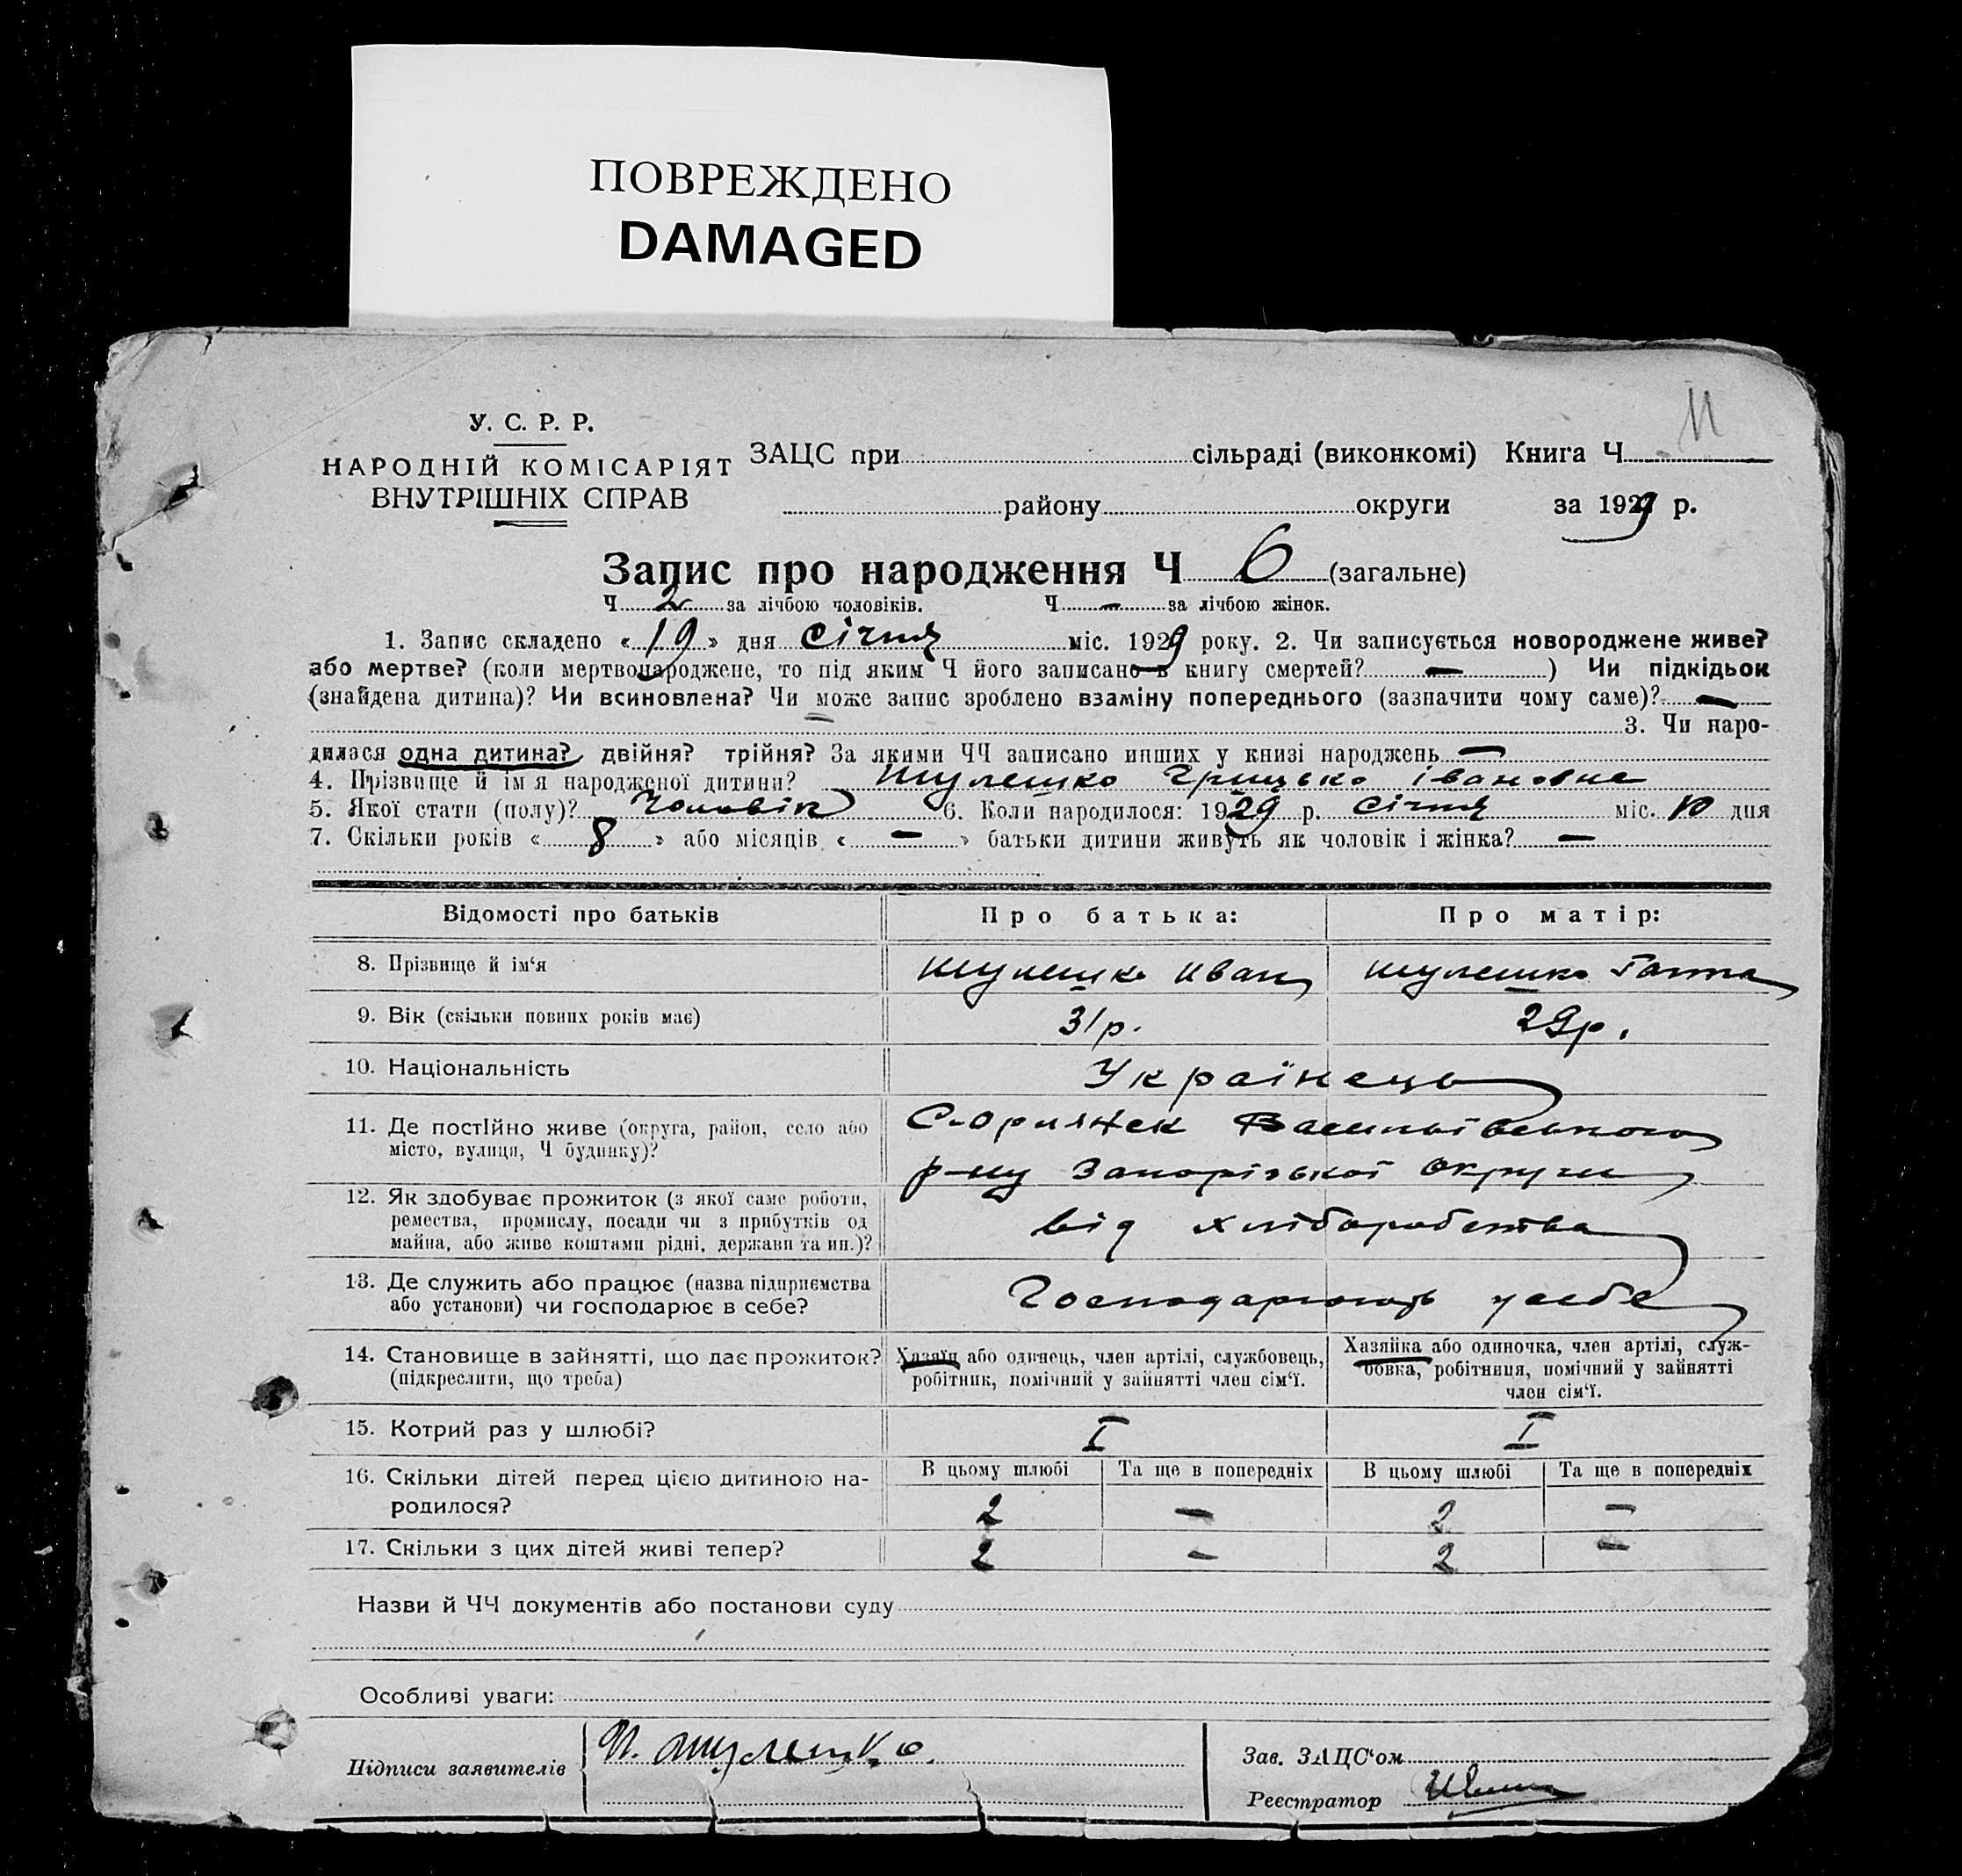 ПОВРЕЖДЕНО
DAMAGED
11
У. С. Р. Р.
НАРОДНІЙ КОМІСАРІЯТ
ВНУТРІШНІХ СПРАВ
ЗАЦС при сільраді (виконкомі) Книга Ч.
району округи за 1929 р.
Запис про народження Ч 6 (загальне)
Ч. 2 за лічбою чоловіків. Ч. — за лічбою жінок.
1. Запис складено « 19 » дня січня міс. 1929 року. 2. Чи записується новороджене живе?
або мертве? (коли мертвонароджене, то під яким Ч його записано в книгу смертей? — ) Чи підкідьок
(знайдена дитина)? Чи всиновлена? Чи може запис зроблено взаміну попереднього (зазначити чому саме)? —
3. Чи наро-
дилася одна дитина? двійня? трійня? За якими ЧЧ записано инших у книзі народжень —
4. Прізвище й ім'я народженої дитини? Шулешко Грицько
5. Якої стати (полу)? Чоловік 6. Коли народилося: 1929 р. січня міс. 10 дня
7. Скільки років « 8 » або місяців « — » батьки дитини живуть як чоловік і жінка? —
Відомості про батьків Про батька: Про матір:
8. Прізвище й ім'я Шулешко Иван Шулешко Ганна
9. Вік (скільки повних років має) 31 р. 29 р.
10. Національність Українець
11. Де постІйно живе (округа, район, село або
місто, вулиця, Ч будинку)?
Василівського
р-ну Запорізької округи
12. Як здобуває прожиток (з якої саме роботи,
ремества, промислу, посади чи з прибутків од
майна, або живе коштами рідні, держави та ин.)?
від хліборобства
13. Де служить або працює (назва підприємства
або установи) чи господарює в себе?
Господарюють у себе
14. Становище в зайнятті, що дає прожиток?
(підкреслити, що треба)
Хазяїн або одинець, член артілі, службовець,
робітник, помічний у зайнятті член сім'ї.
Хазяйка або одиночка, член артілі, служ-
бовка, робітниця, помічний у зайнятті
член сім'ї.
15. Котрий раз у шлюбі? I I
16. Скільки дітей перед цією дитиною на-
родилося?
В цьому шлюбі Та ще в попередніх В цьому шлюбі Та ще в попередніх
2 — 2 —
17. Скільки з цих дітей живі тепер? 2 — 2 —
Назви й ЧЧ документів або постанови суду
Особливі уваги:
Підписи заявителів И. Шулешко.
Зав. ЗАЦС'ом
Реєстратор